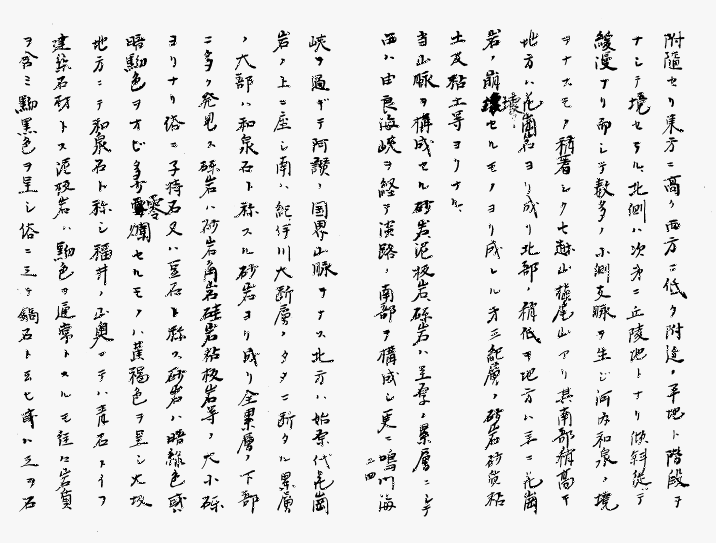 附隨セリ東方ニ高ク西方ニ低ク附近ノ平地ト階段ヲ
ナシテ境セラル北側ハ次第ニ丘陵地トナリ傾斜従テ
緩漫ナリ而シテ数多ノ小側支脈ヲ生ジ河内和泉ノ境
ヲナスモノ稍著シク七越山槇尾山アリ其南部稍高キ
地方ハ花崗岩ヨリ成リ北部ノ稍低キ地方ハ主ニ花崗
岩ノ崩壊セルモノヨリ成レル第三紀層ノ砂岩砂質粘
土及粘土等ヨリナル
当山脉ヲ構成セル砂岩泥板岩砾岩ハ互層ノ累層ニシテ
西ハ由良海峡ヲ経テ淡路ノ南部ヲ構成シ更ニ鳴門海
二四
峡ヲ過ギテ阿讃ノ国界山脉ヲナス北方ハ始原代花崗
岩ノ上ニ座シ南ハ紀伊川大断層ノタメニ断タル累層
ノ大部ハ和泉石ト称スル砂岩ヨリ成リ全累層ノ下部
ニ多ク発見ス砾岩ハ砂岩角岩硅岩粘板岩等ノ大小砾
ヨリナリ俗ニ子持石又ハ豆石ト称ス砂岩ハ暗緑色或ハ
暗黝色ヲオビ多少零爛セルモノハ黄褐色ヲ呈シ大坂
地方ニテ和泉石ト称シ福井ノ山奥ニテハ青石トイフ
建築石材トス泥板岩ハ黝色ヲ通常トスルモ往々岩質
ヲ含ミ黝黒色ヲ呈シ俗ニ三テ鍋石ト云ヒ或ハ之ヲ石